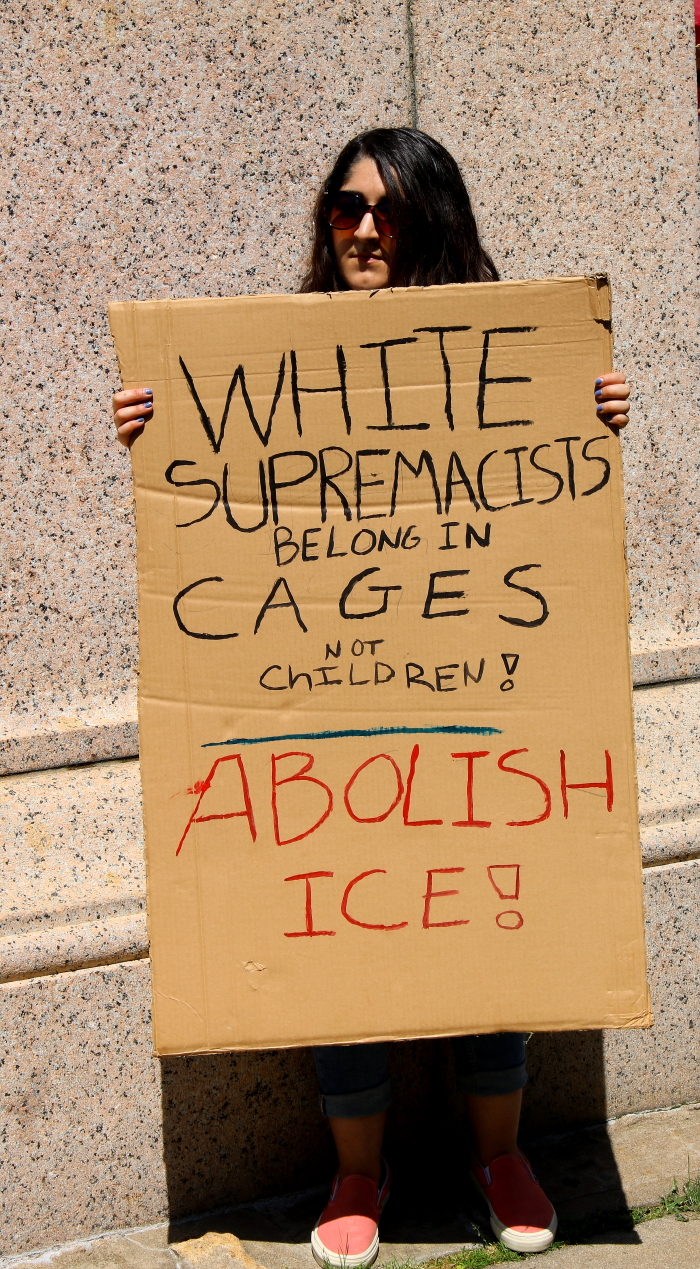 WHITE
SUPREMACISTS
BELONG IN
CAGES
NOT
ChILDREN!
ABOLISH
ICE!